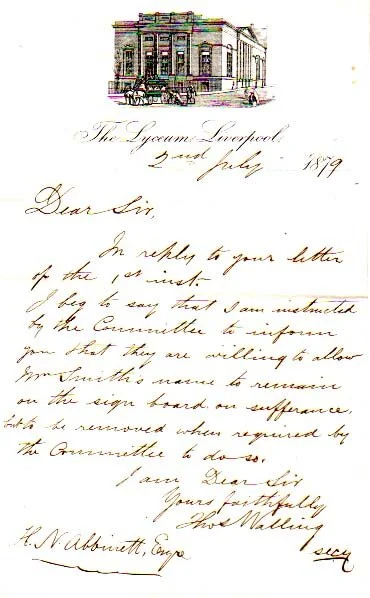 The Lyceum, Liverpool,
2nd July 1879
Dear Sir,
In reply to your letter
of the 1st inst.
I beg to say that I am instructed
by the Committee to inform
you that they are willing to allow
Mr Smith's name to remain
on the sign board on sufferance.
but to be removed when required by
the Committee to do so.
I am Dear Sir
Yours faithfully
Thos Walling
secy
H. N. Abbinett, Esqre